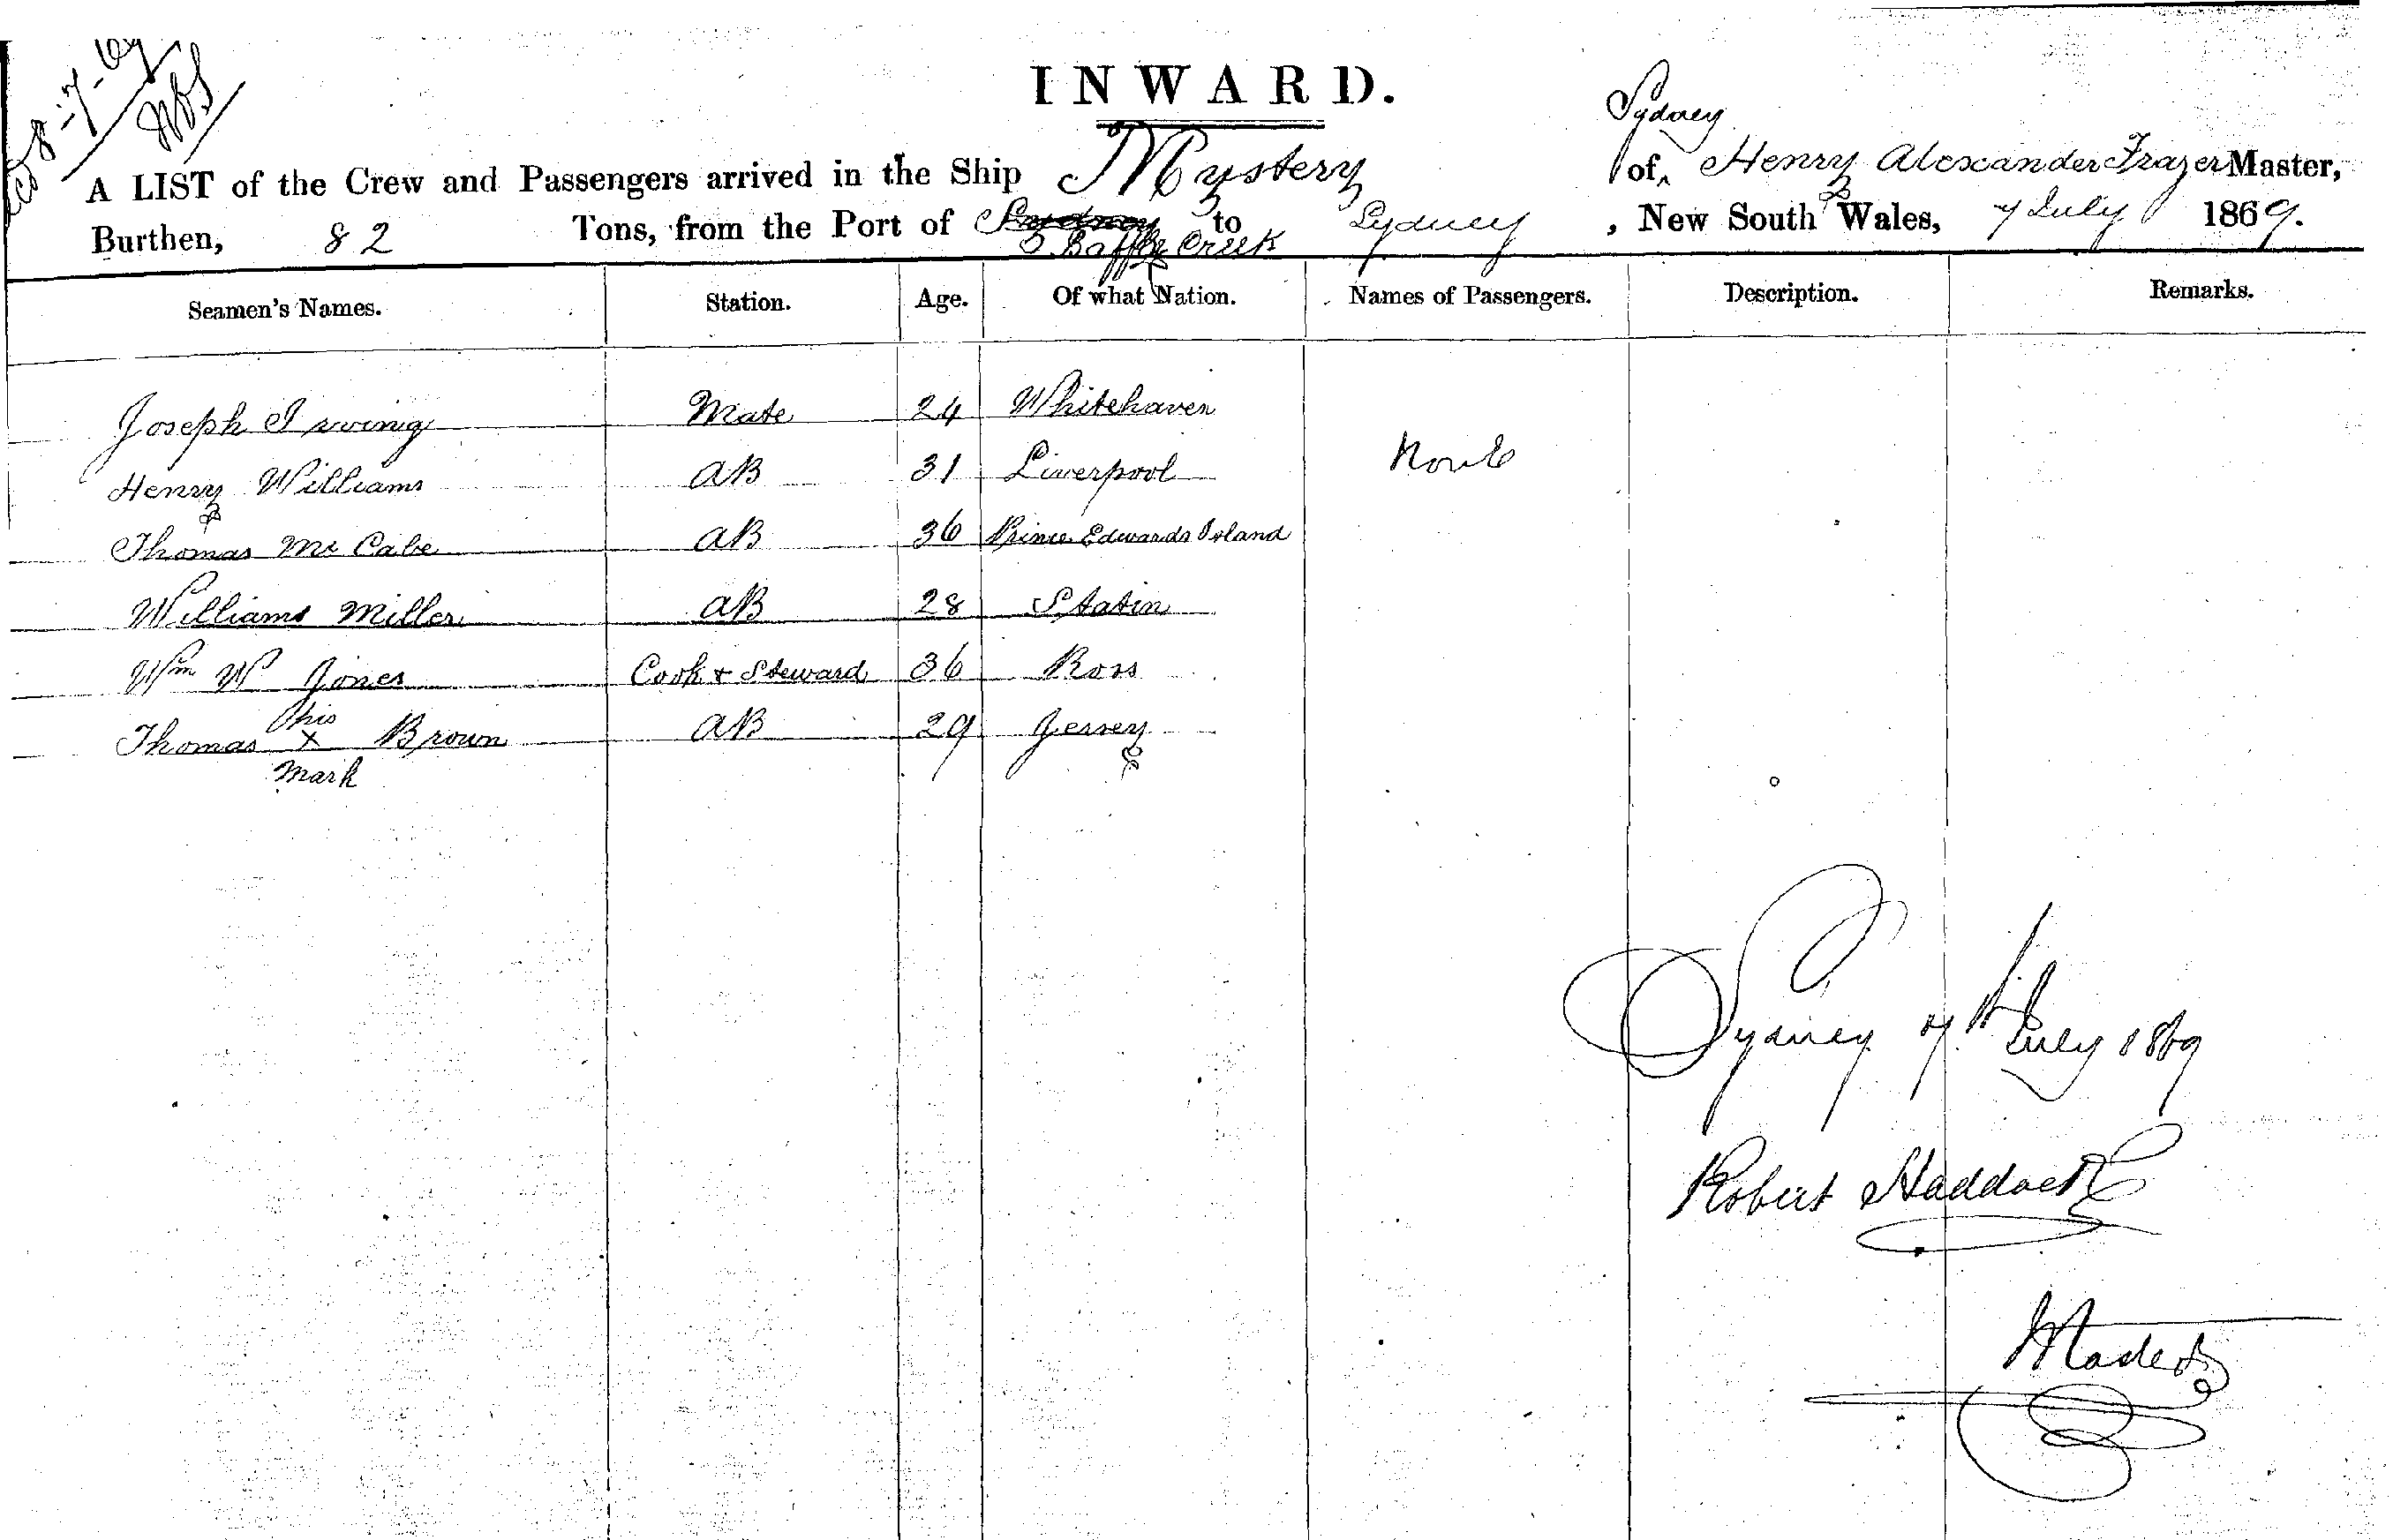 8-7-69
INWARD.
Sydney
A LIST of the Crew and Passengers arrived in the Ship Mystery of Henry Alexander Frazer Master,
Burthen, 82 Tons, from the Port of Sydney to Sydney, New South Wales, 7 July 1869.
Baffle Creek
Seamen's Names. Station. Age. Of what Nation. Names of Passengers. Description. Remarks.
Joseph Irwing Mate 24 Whitehaven
Henry Williams AB 31 Liverpool None
Thomas Mc Cabe AB 36 Prince Edwards Island
Williams Miller AB 28 Statin
Wm W Jones Cook + Steward 36 Ross
his
Thomas x Brown AB 29 Jersey
mark
Sydney 7th July 1869
Robert Haddock
Master